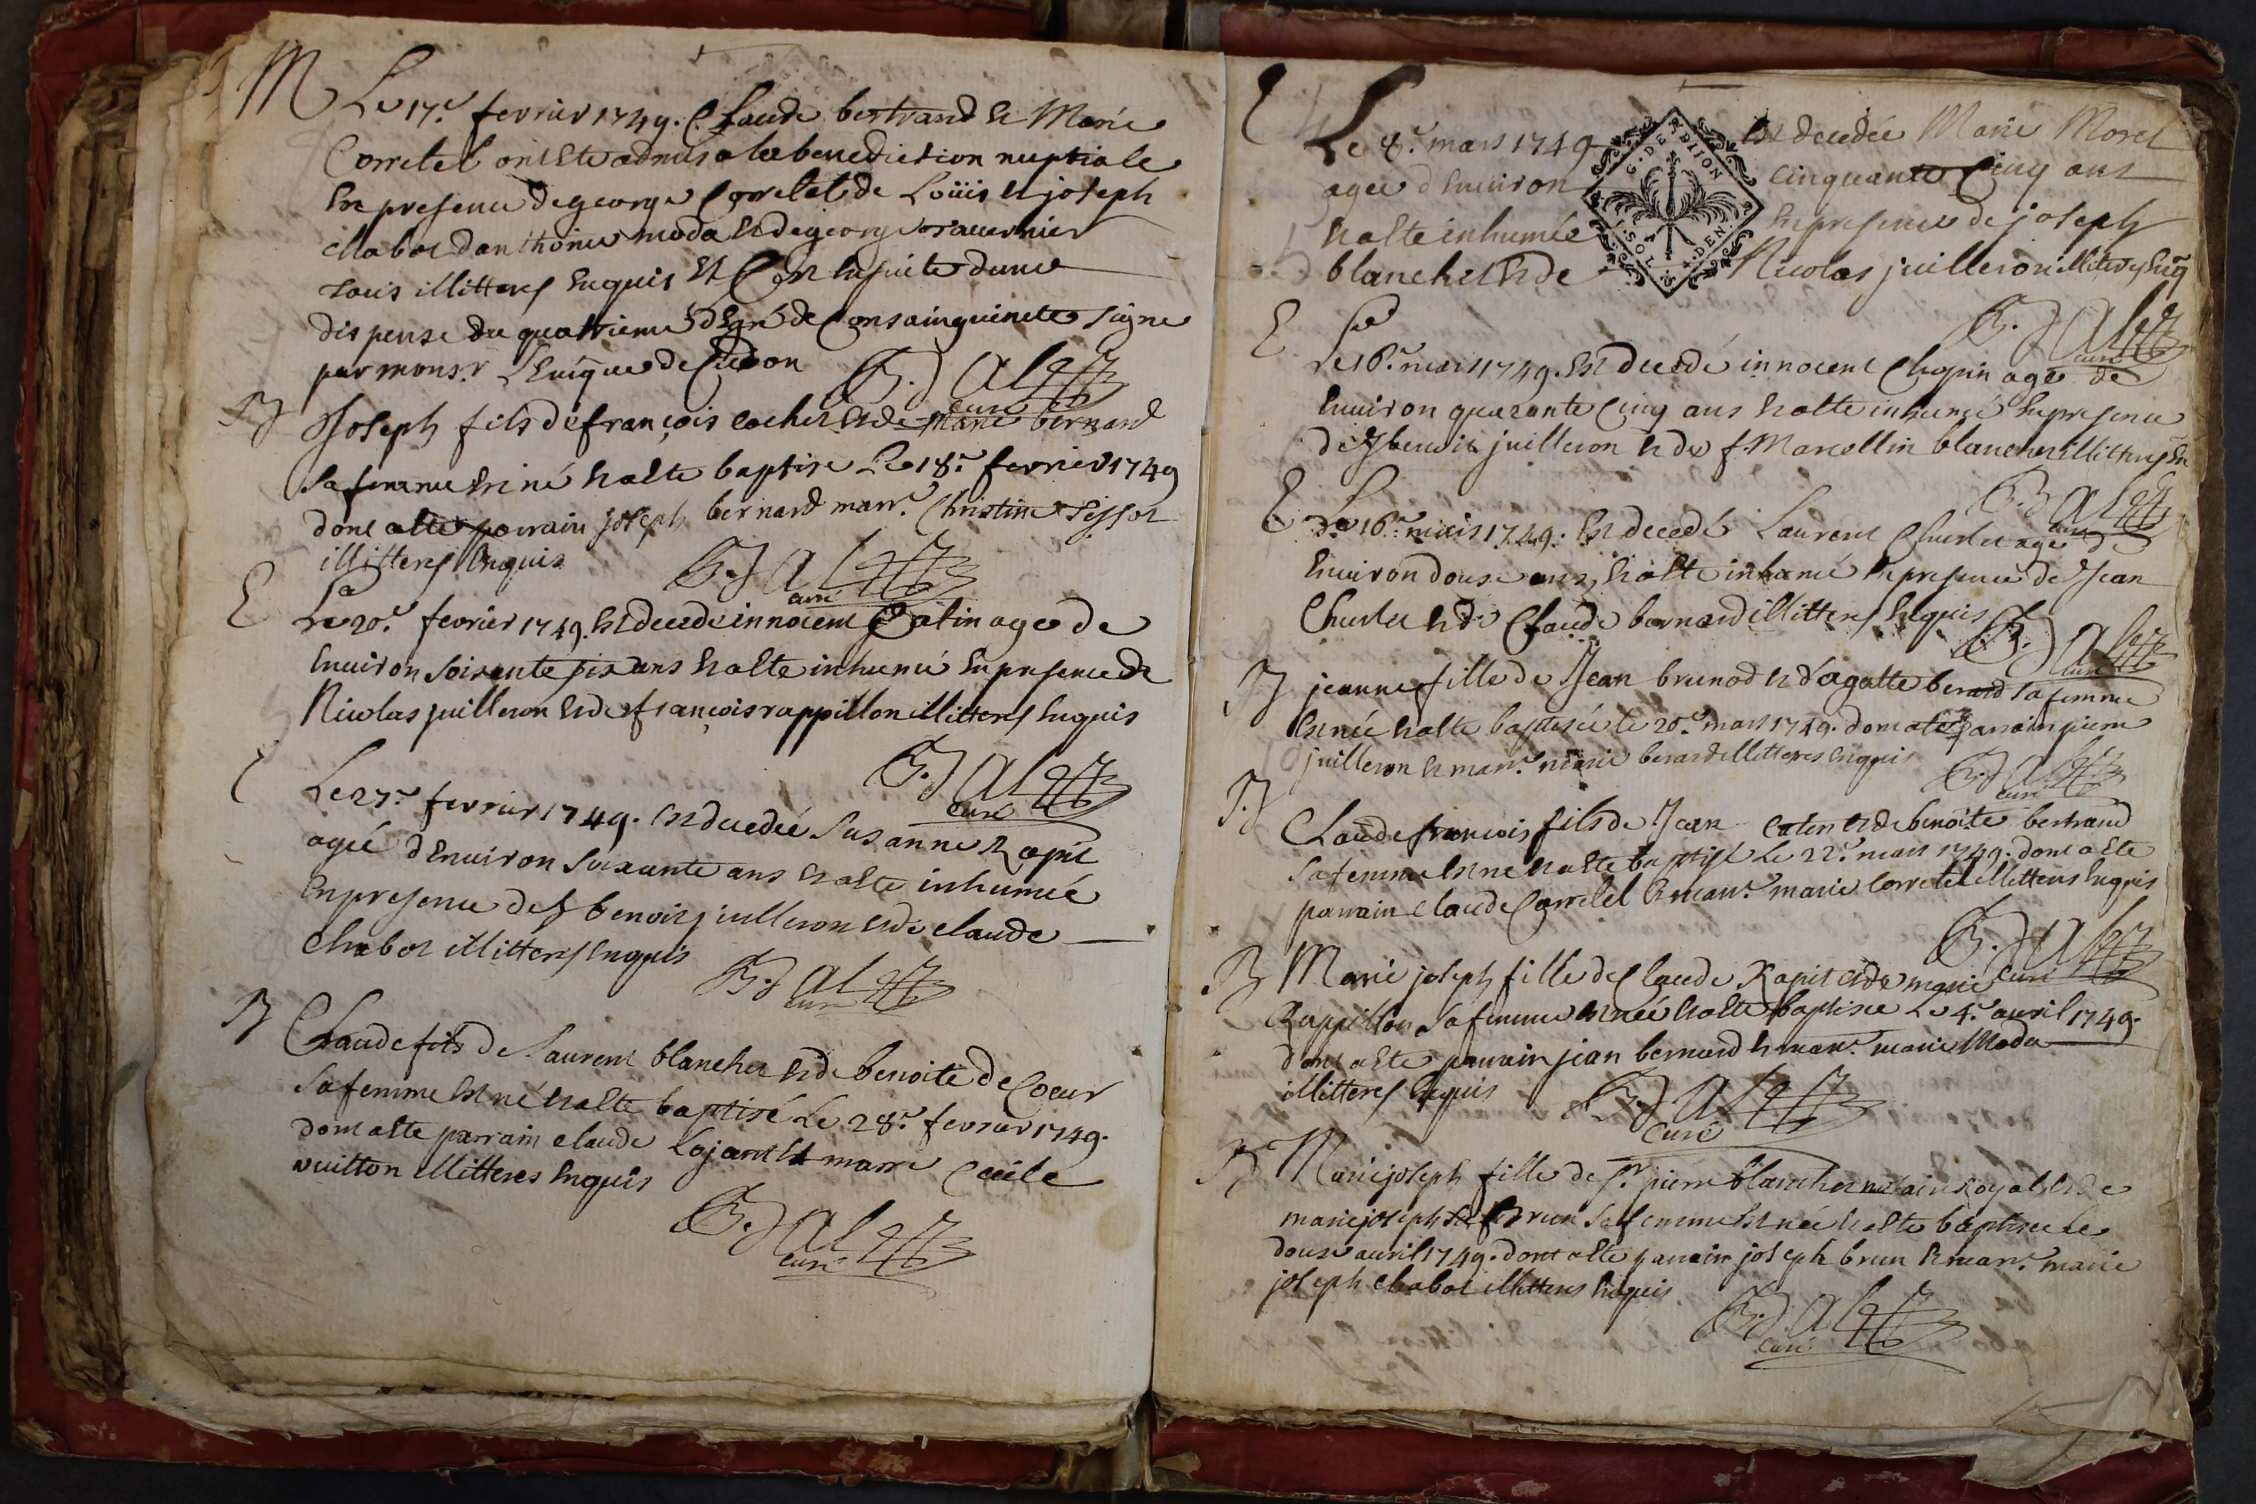 M
Le 17.e fevrier 1749. Claude bertrand et Marie
Corretel ont ete admis a la benediction nuptiale
En presence de george Corretel de Loüis et joseph
chabot d'anthoine moda et de george
tous illitteres Enquis et Ce En suite d'une
dispense du quatrieme degré de Consainguinete signe
par mons.r L'Evêque de
curé
B
Joseph fils de françois cochet et de marie bernard
sa femme est né et a ete baptise Le 18.e fevrier 1749
dont a ete parrain joseph bernard marr.e Christine
illitteres Enquis
curé
E
Le 20.e fevrier 1749. Est decede innocent Catin age de
Environ soixante six ans et a ete inhumé En presence de
Nicolas juilleron et de françois rappillon illitteres Enquis
curé
E
Le 27.e fevrier 1749. Est decedée Susanne Rapit
agée d'Environ soixante ans et a ete inhumée
En presence de benoit juilleron et de claude
Chabot illitteres Enquis
curé
B
Claude fils de Laurent blanchet et de benoite de Coeur
sa femme est né et a ete baptisé Le 28.e fevrier 1749.
dont a ete parrain claude et marre Cecile
vuitton illitteres Enquis
curé
E
Le 8.e mars 1749 Est decedée Marie Morel
G. DE DIJON
agée d'Environ cinquante Cinq ans
SOL
DEN.
et a ete inhumée En presence de joseph
blanchet et de Nicolas juilleron illiteres Enq
curé
E
Le 16.e mars 1749. Est decedé innocent Chapin age de
Environ quarante Cinq ans et a ete inhumé En presence
de benoit juilleron et de f. Marcellin blanchet illitteres En
curé
E
Le 16.e mars 1749. Est decedé Laurent Churlet age de
Environ douse ans, et a ete inhumé En presence de Jean
Churlet et de Claude bernard illitteres Enquis
curé
B
jeanne fille de Jean brunod et d'agatte berard sa femme
est née et a ete baptisée le 20.e mars 1749. dont a ete parrain pierre
juilleron et marr.e marie berard illitteres Enquis
curé
B
Claude françois fils de Jean catin et de benoite bertrand
sa femme est ne et a ete baptisé Le 22.e mars 1749. dont a ete
parrain claude Corretel et marr.e marie Corretel illitteres Enquis
curé
B
Marie joseph fille de Claude Rapit et de marie
Rappillon sa femme est née et a ete baptisée Le 4.e avril 1749.
dont a ete parrain jean bernard et marr.e marie Moda
illitteres Enquis
curé
B
Marie joseph fille de S.r pierre blanchet notaire Royal et de
marie joseph sa femme est née et a ete baptisée Le
douse avril 1749. dont a ete parrain joseph brun et marr.e marie
joseph chabot illitteres Enquis
curé